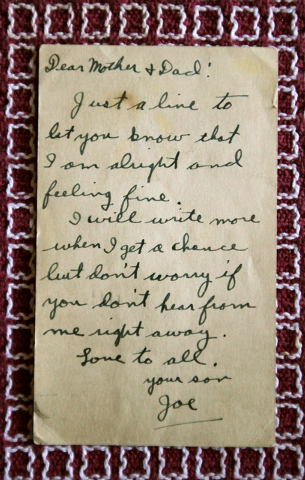 Dear Mother & Dad!
Just a line to
let you know that
I am alright and
feeling fine.
I will write more
when I get a chance
but don't worry if
you don't hear from
me right away.
Love to all.
your son
Joe